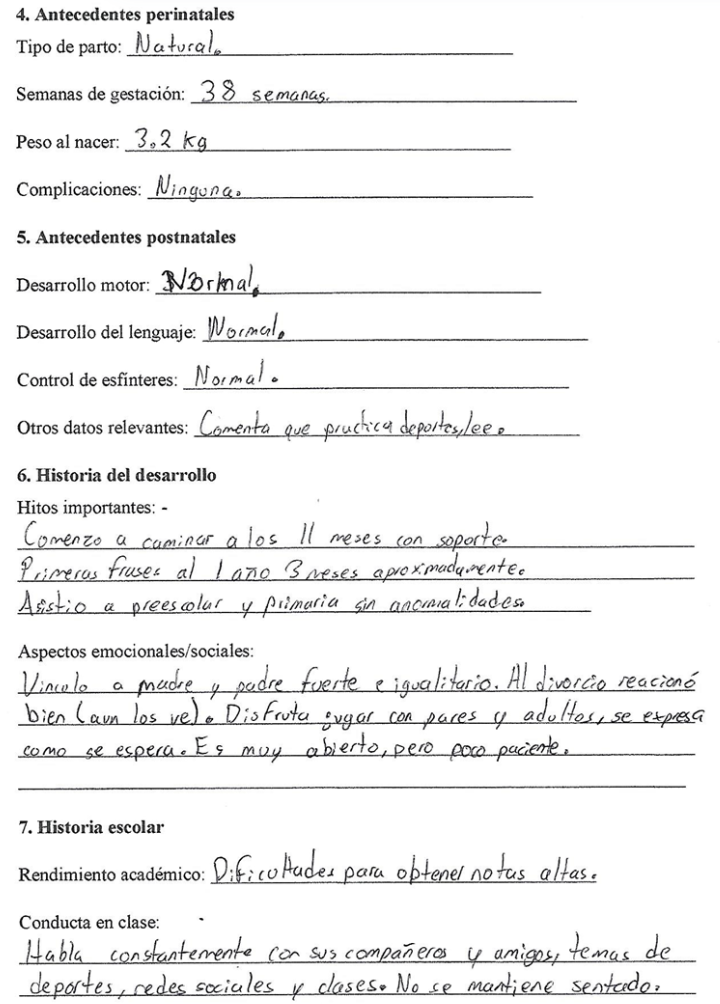 4. Antecedentes perinatales
Tipo de parto: Natural.
Semanas de gestación: 38 semanas.
Peso al nacer: 3.2 kg
Complicaciones: Ninguna.
5. Antecedentes postnatales
Desarrollo motor: Normal.
Desarrollo del lenguaje: Normal.
Control de esfínteres: Normal.
Otros datos relevantes: Comenta que practica deportes, lee.
6. Historia del desarrollo
Hitos importantes: -
Comenzo a caminar a los 11 meses con soporte.
Primeras frases al 1 año 3 meses aproximadamente.
Asistio a preescolar y primaria sin anomalidades.
Aspectos emocionales/sociales:
Vinculo a madre y padre fuerte e igualitario. Al divorcio reacionó
bien (aun los ve). Disfruta jugar con pares y adultos, se expresa
como se espera. Es muy abierto, pero poco paciente.
7. Historia escolar
Rendimiento académico: Dificultades para obtener notas altas.
Conducta en clase:
Habla constantemente con sus compañeros y amigos, temas de
deportes, redes sociales y clases. No se mantiene sentado.